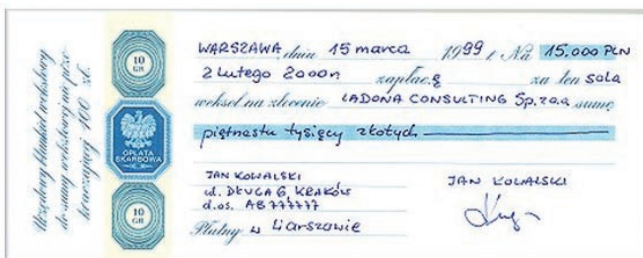 Urzędowy blankiet wekslowy
do sumy wekslowej nie prze-
wyższającej 100 zł.
10
GR
OPŁATA
SKARBOWA
10
GR
WARSZAWA, dnia 15 marca 1999 r. Na 15.000 PLN
2 Lutego 2000r. zapłacę za ten sola
weksel na zlecenie LADONA CONSULTING Sp. z o.o. sumę
piętnastu tysięcy złotych
JAN KOWALSKI
ul. DŁUGA 6, KRAKÓW
d.os. AB 777777
Płatny w Warszawie
JAN KOWALSKI